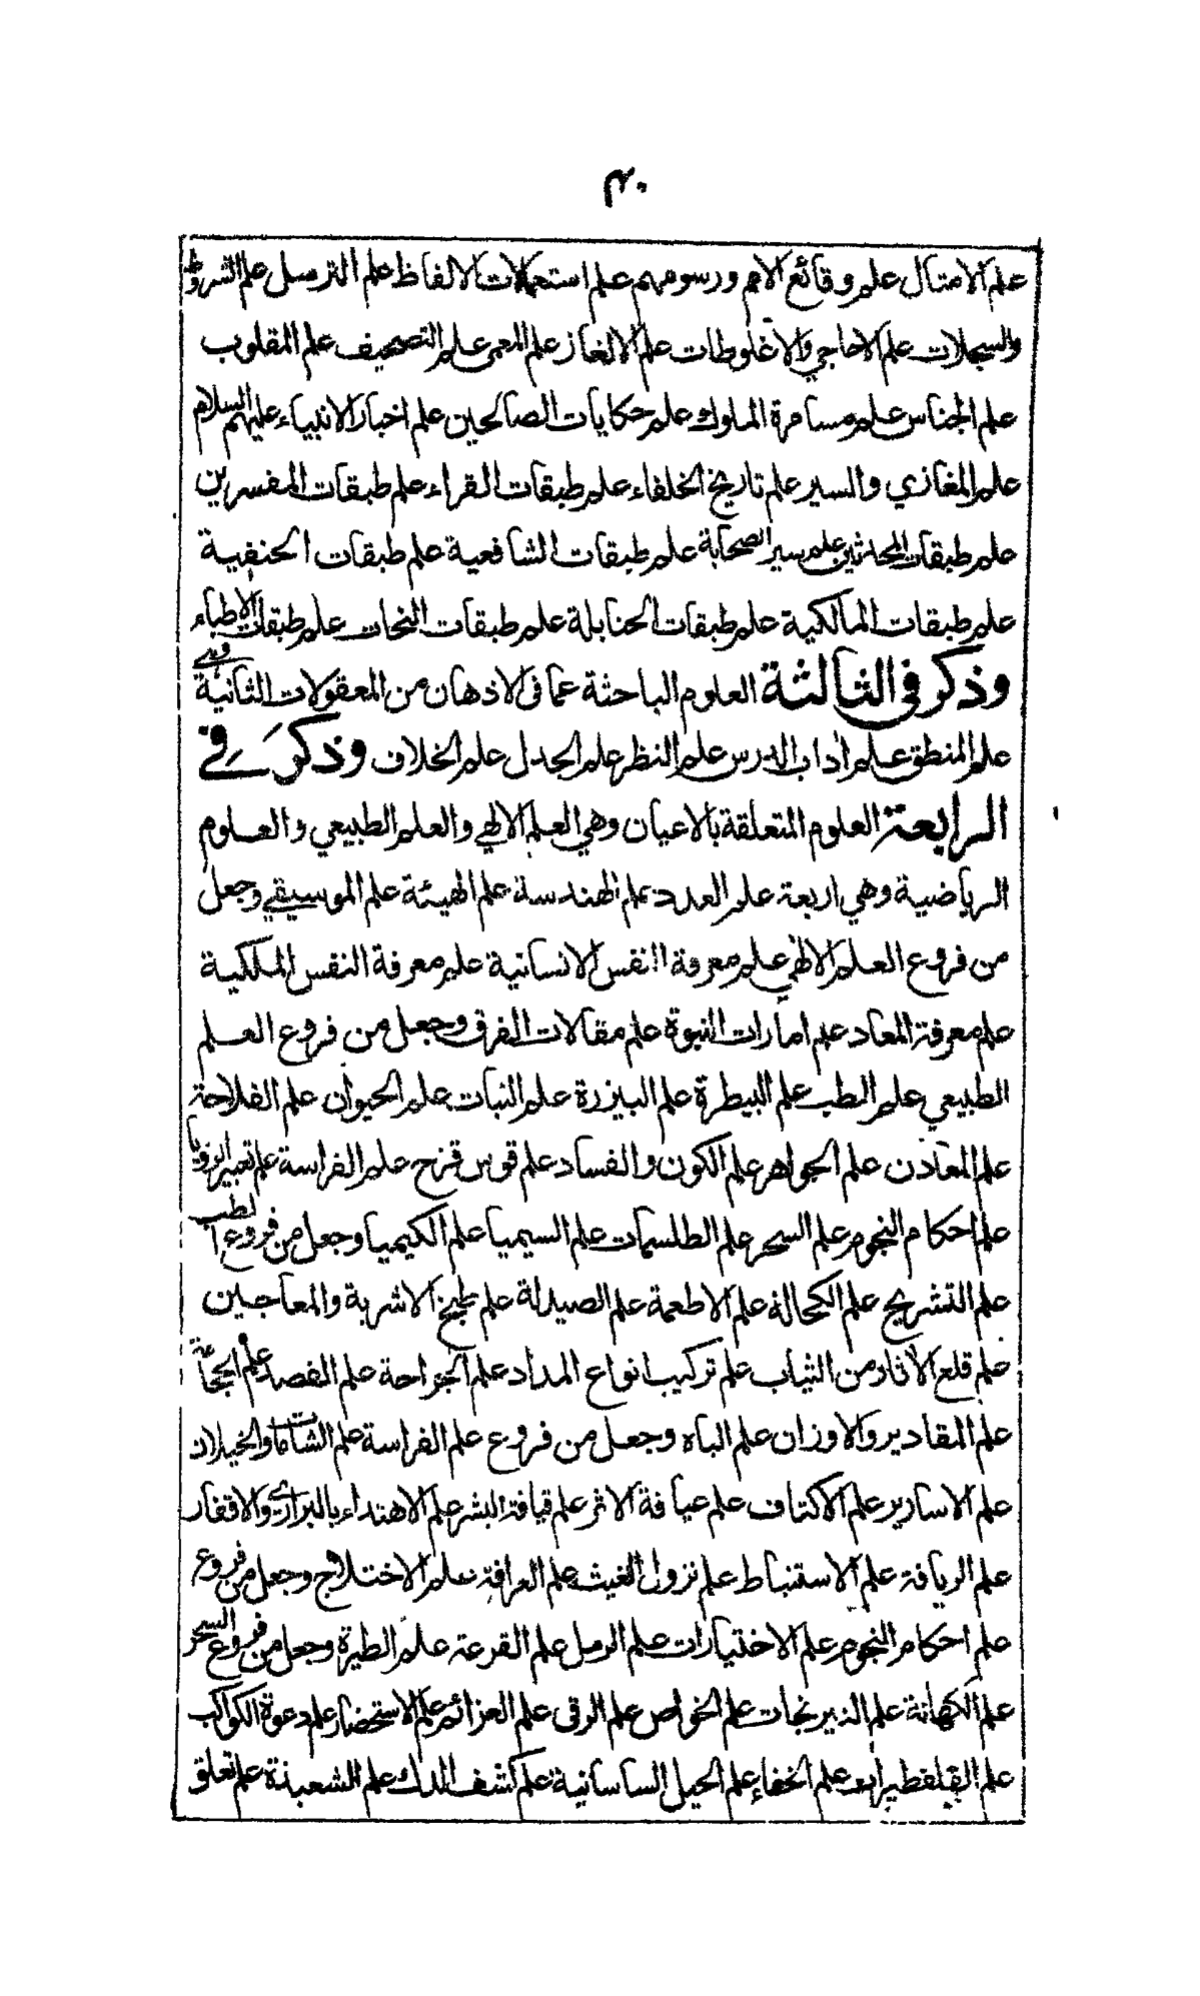 ٣٠
علم الامثال علم وقائع الامم ورسومهم علم استعمالات الالفاظ علم الترسل علم الشروط
والسجلات علم الاحاجي والاغلوطات علم الالغاز علم المعمى علم التصحيف علم المقلوب
علم الجناس علم مسامرة الملوك علم حكايات الصالحين علم اخبار الانبياء عليهم السلام
علم المغازي والسير علم تاريخ الخلفاء علم طبقات القراء علم طبقات المفسرين
علم طبقات المحدثين علم سير الصحابة علم طبقات الشافعية علم طبقات الحنفية
علم طبقات المالكية علم طبقات الحنابلة علم طبقات النحات علم طبقات الاطباء
وذكر في الثالثة العلوم الباحثة عما فى الاذهان من المعقولات الثانية وهي
علم المنطق علم اداب الدرس علم النظر علم الجدل علم الخلاف وذكر في
الرابعة العلوم المتعلقة بالاعيان وهي العلم الالهي والعلم الطبيعي والعلوم
الرياضية وهي اربعة علم العدد علم الهندسة علم الهيئة علم الموسيقي وجعل
من فروع العلم الالهي علم معرفة النفس الانسانية علم معرفة النفس الملكية
علم معرفة المعاد علم امارات النبوة علم مقالات الفرق وجعل من فروع العلم
الطبيعي علم الطب علم البيطرة علم البيزرة علم النبات علم الحيوان علم الفلاحة
علم المعادن علم الجواهر علم الكون والفساد علم قوس قزح علم الفراسة علم تعبير الرؤيا
علم احكام النجوم علم السحر علم الطلسمات علم السيميا علم الكيميا وجعل من فروع الطب
علم التشريح علم الكحالة علم الاطعمة علم الصيدلة علم طبخ الاشربة والمعاجين
علم قلع الاثار من الثياب علم تركيب انواع المداد علم الجراحة علم الفصد علم الحجامة
علم المقادير والاوزان علم الباه وجعل من فروع علم الفراسة علم الشامات والخيلان
علم الاسارير علم الاكتاف علم عيافة الاثر علم قيافة البشر علم الاهتداء بالبراري والاقفار
علم الريافة علم الاستنباط علم نزول الغيث علم العرافة علم الاختلاج وجعل من فروع
علم احكام النجوم علم الاختيارات علم الرمل علم القرعة علم الطيرة وجعل من فروع السحر
علم الكهانة علم النيرنجات علم الخواص علم الرقى علم العزائم علم الاستحضار علم دعوة الكواكب
علم القلفطيرات علم الخفاء علم الحيل الساسانية علم كشف الدك علم الشعبذة علم تعلق